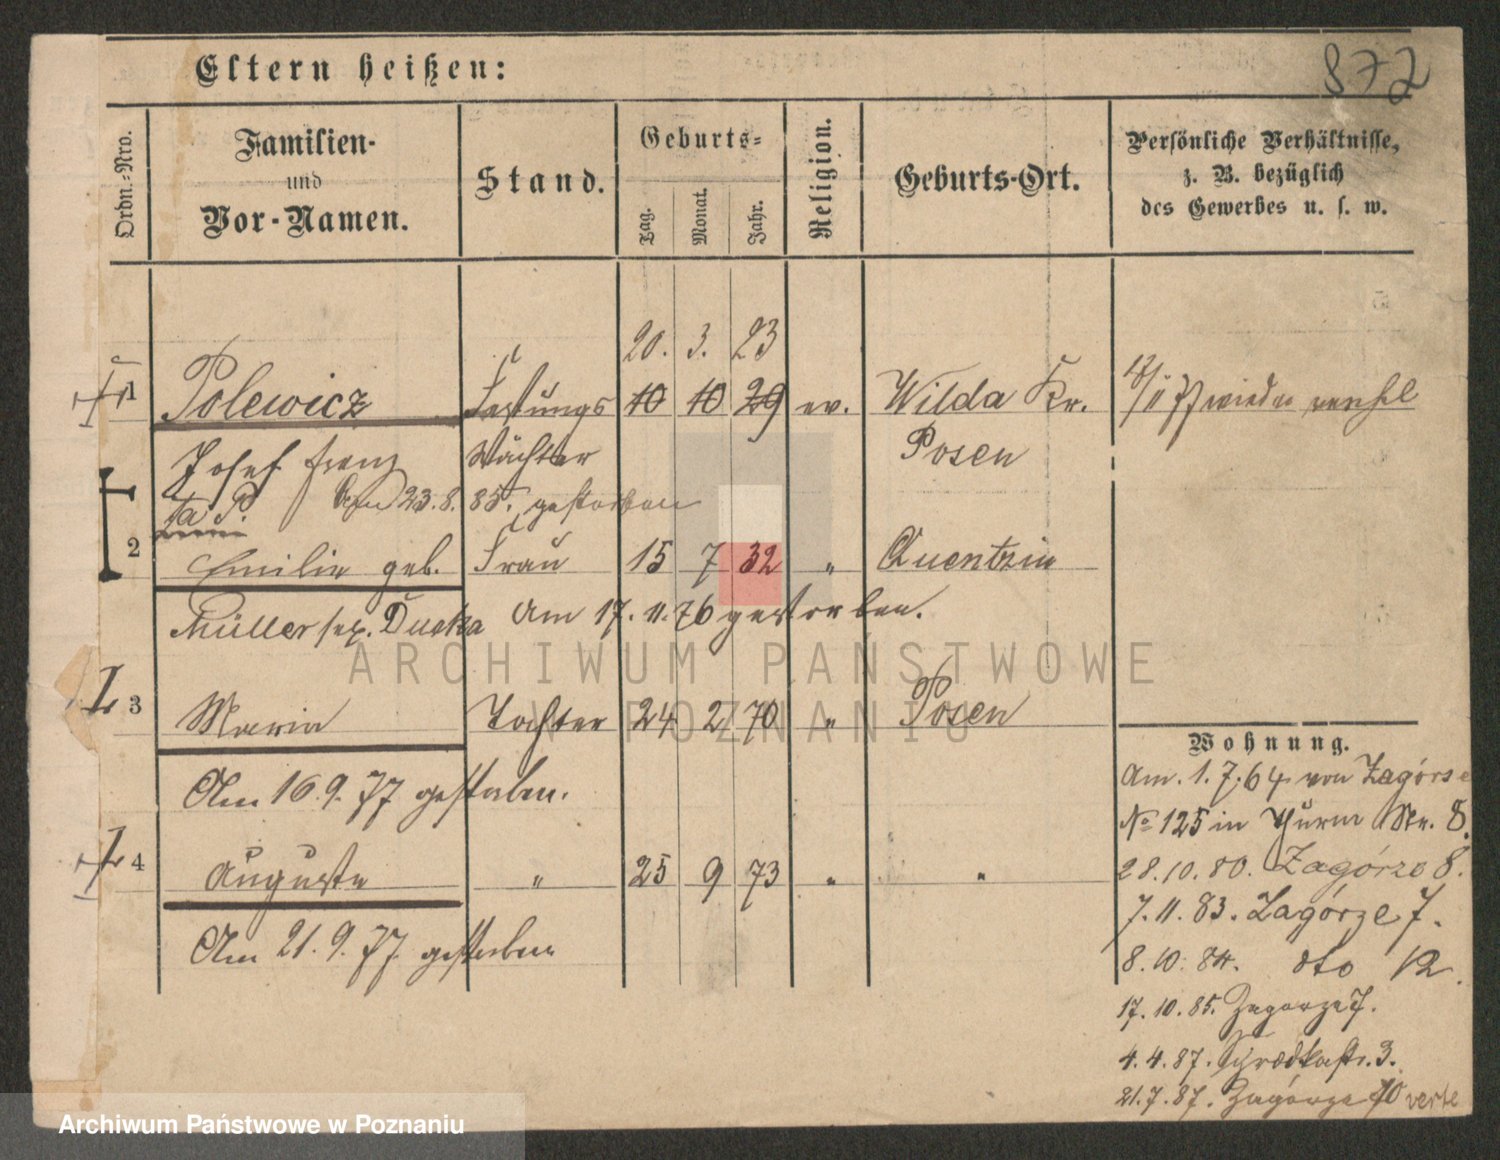 872
Eltern heißen:
Ordn.-Nro.
Familien-
und
Vor-Namen.
Stand.
Geburts-
Tag.
Monat.
Jahr.
Religion.
Geburts-Ort.
Persönliche Verhältnisse,
z. B. bezüglich
des Gewerbes u. s. w.
20. 3. 23
1 Polewicz Festungs 10 10 29 ev. Wilda Kr. wieder
Josef Franz Wächter Posen
Am 23.8.85. gestorben
2 Emilie geb. Frau 15 7 32 " Quentzin
Müller sep. Ducka Am 17.11.76 gestorben.
3 Maria Tochter 24 2 70 " Posen
Am 16.9.77 gestorben.
4 Auguste " 25 9 73 " "
Am 21.9.77 gestorben
Wohnung.
Am. 1.7.64 von Zagórze
No 125 in Thurm Str. 8.
28.10.80. Zagórze 8.
7.11.83. Zagórze 7.
8.10.84. dto 12.
17.10.85. Zagorze 7.
4.4.87. Schrodkastr. 3.
21.7.87. Zagórze 10 verte
ARCHIWUM PAŃSTWOWE
W POZNANIU
Archiwum Państwowe w Poznaniu